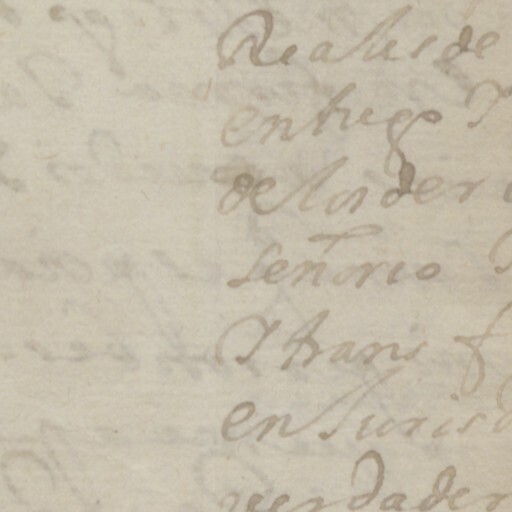 Reales de
entrego Y
de los der
señorio Y
Y trans f
en su juris
verdader